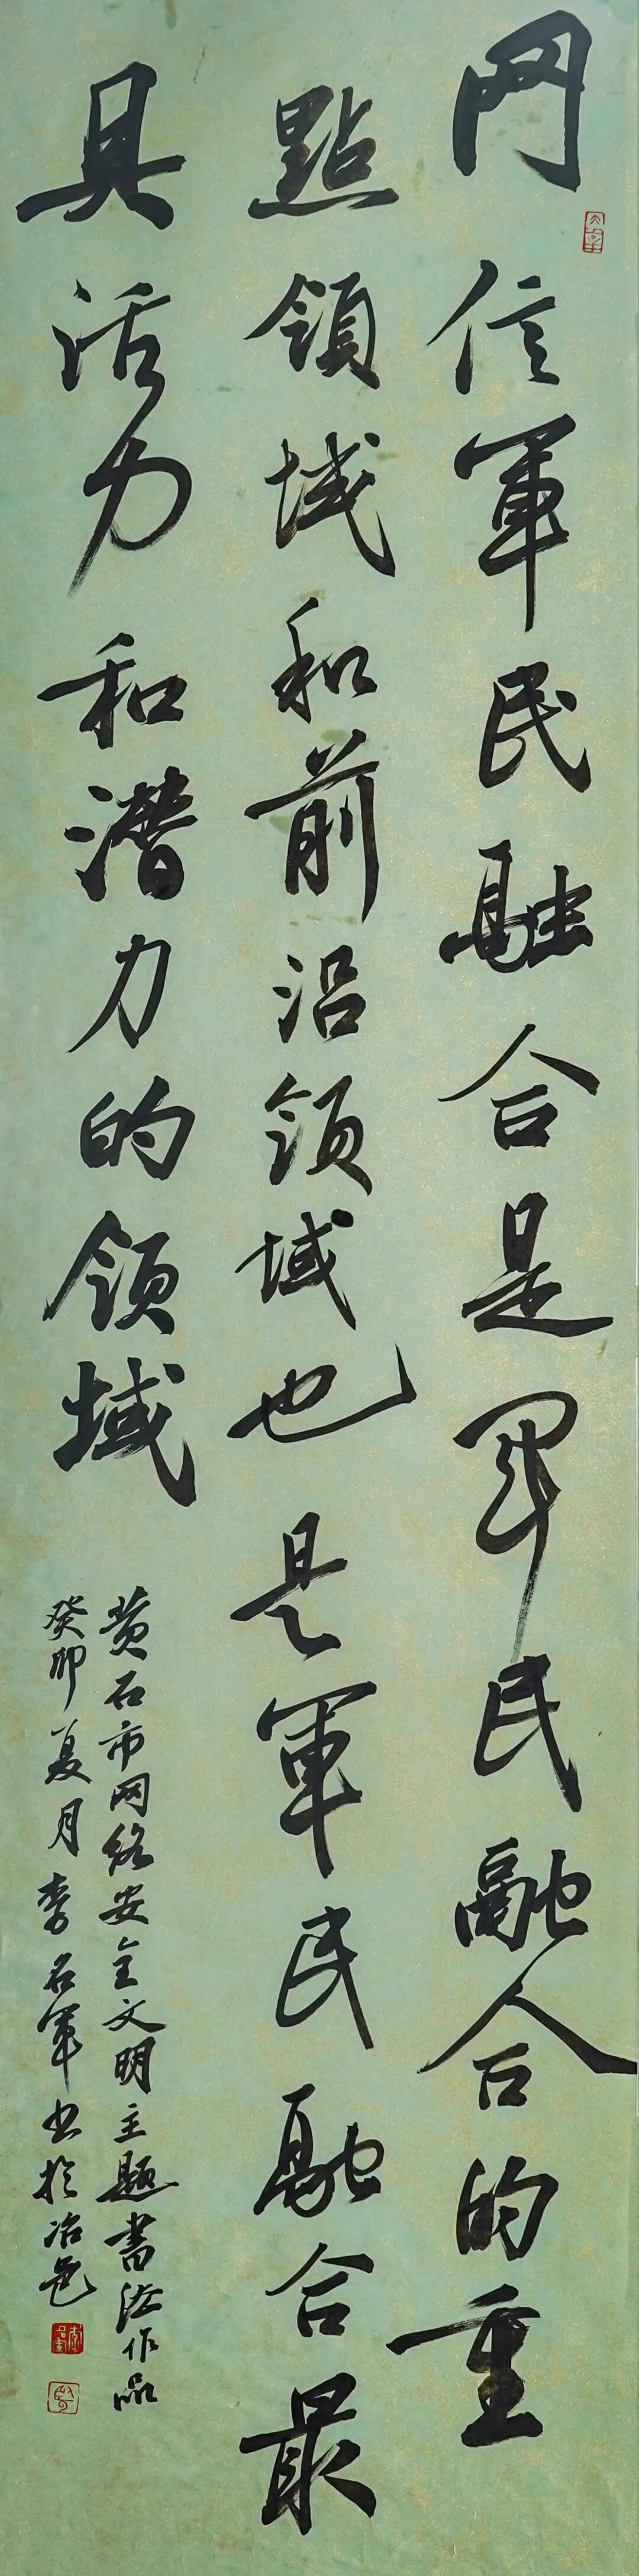 网信軍民融合是军民融合的重
點領域和前沿领域也是軍民融合最
具活力和潛力的领域
黄石市网络安全文明主题書法作品
癸卯夏月李名軍书於冶邑